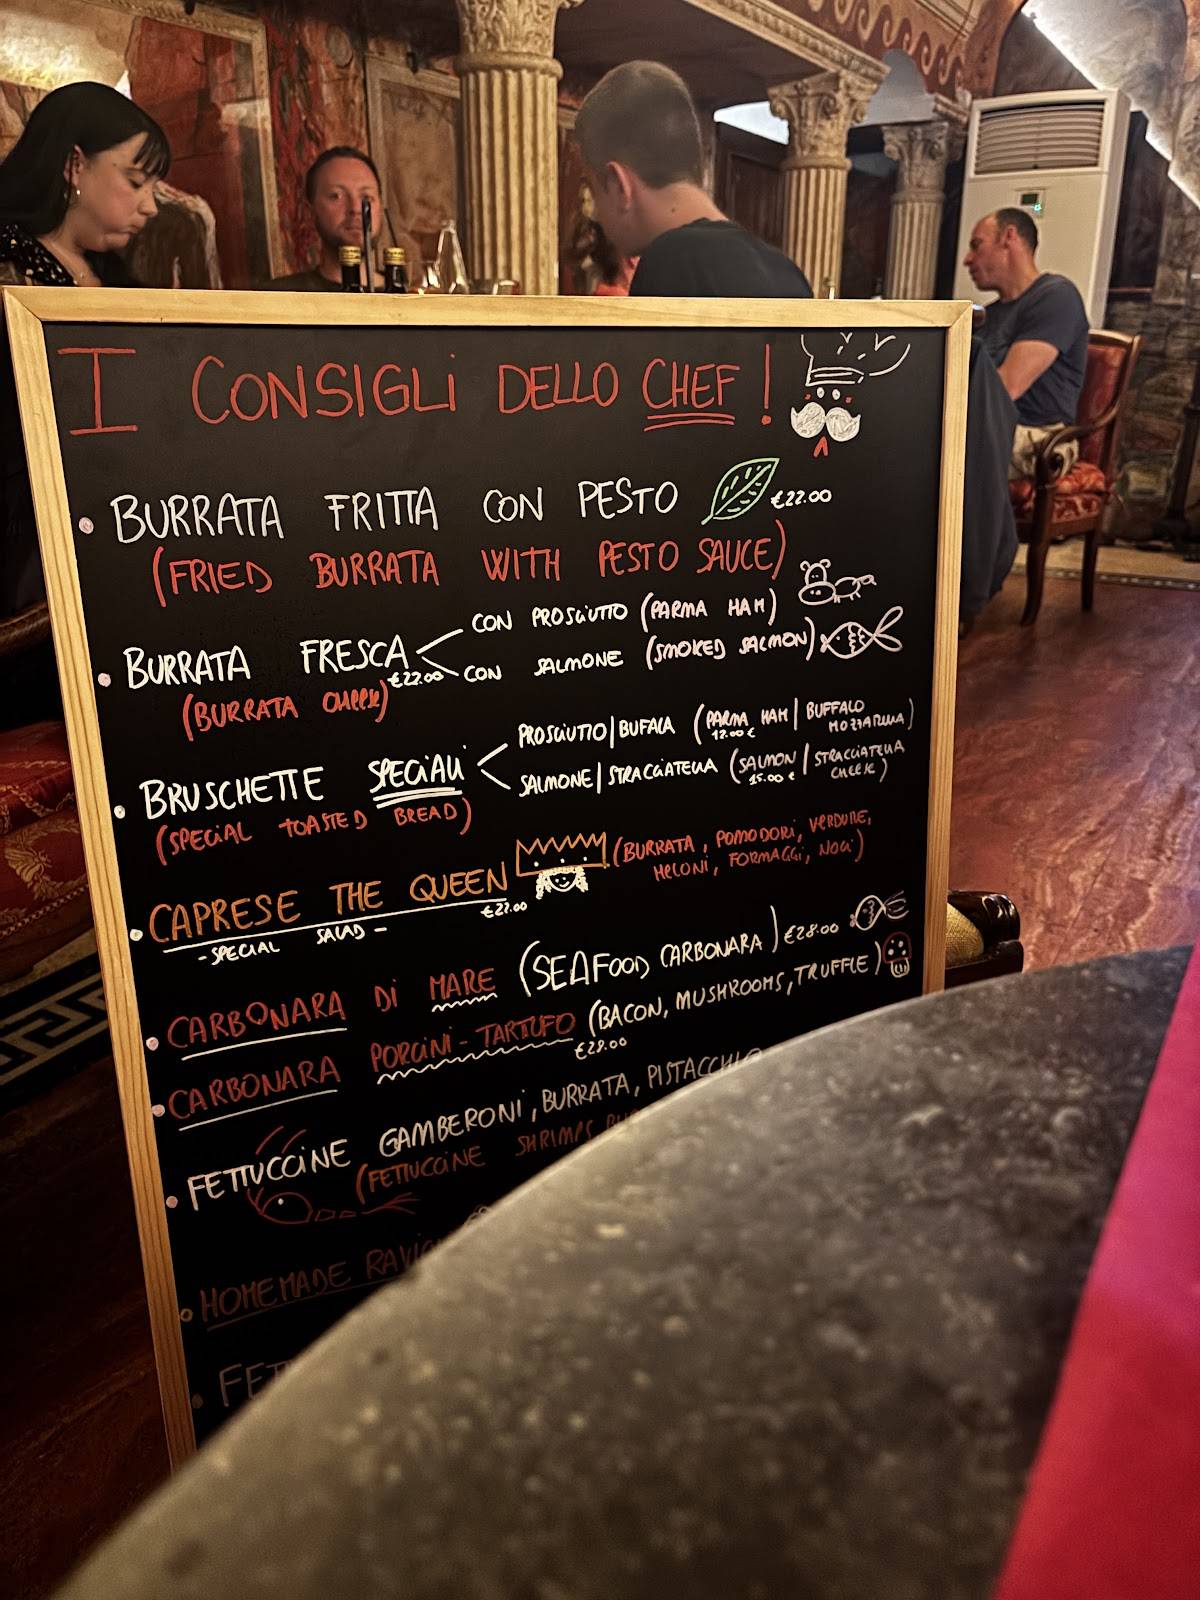 I CONSIGLI DELLO CHEF!
• BURRATA FRITTA CON PESTO €22.00
(FRIED BURRATA WITH PESTO SAUCE)
• BURRATA FRESCA €22.00
CON PROSCIUTTO (PARMA HAM)
CON SALMONE (SMOKED SALMON)
(BURRATA CHEESE)
• BRUSCHETTE SPECIALI
PROSCIUTTO/BUFALA (PARMA HAM/BUFFALO MOZZARELLA) 12.00 €
SALMONE/STRACCIATELLA (SALMON/STRACCIATELLA CHEESE) 15.00 €
(SPECIAL TOASTED BREAD)
• CAPRESE THE QUEEN (BURRATA, POMODORI, VERDURE,
MELONI, FORMAGGI, NOCI)
- SPECIAL SALAD -
• CARBONARA DI MARE (SEAFOOD CARBONARA) €28.00
• CARBONARA PORCINI-TARTUFO (BACON, MUSHROOMS, TRUFFLE)
€28.00
• FETTUCCINE GAMBERONI, BURRATA, PISTACCHIO
(FETTUCCINE SHRIMPS
• HOMEMADE